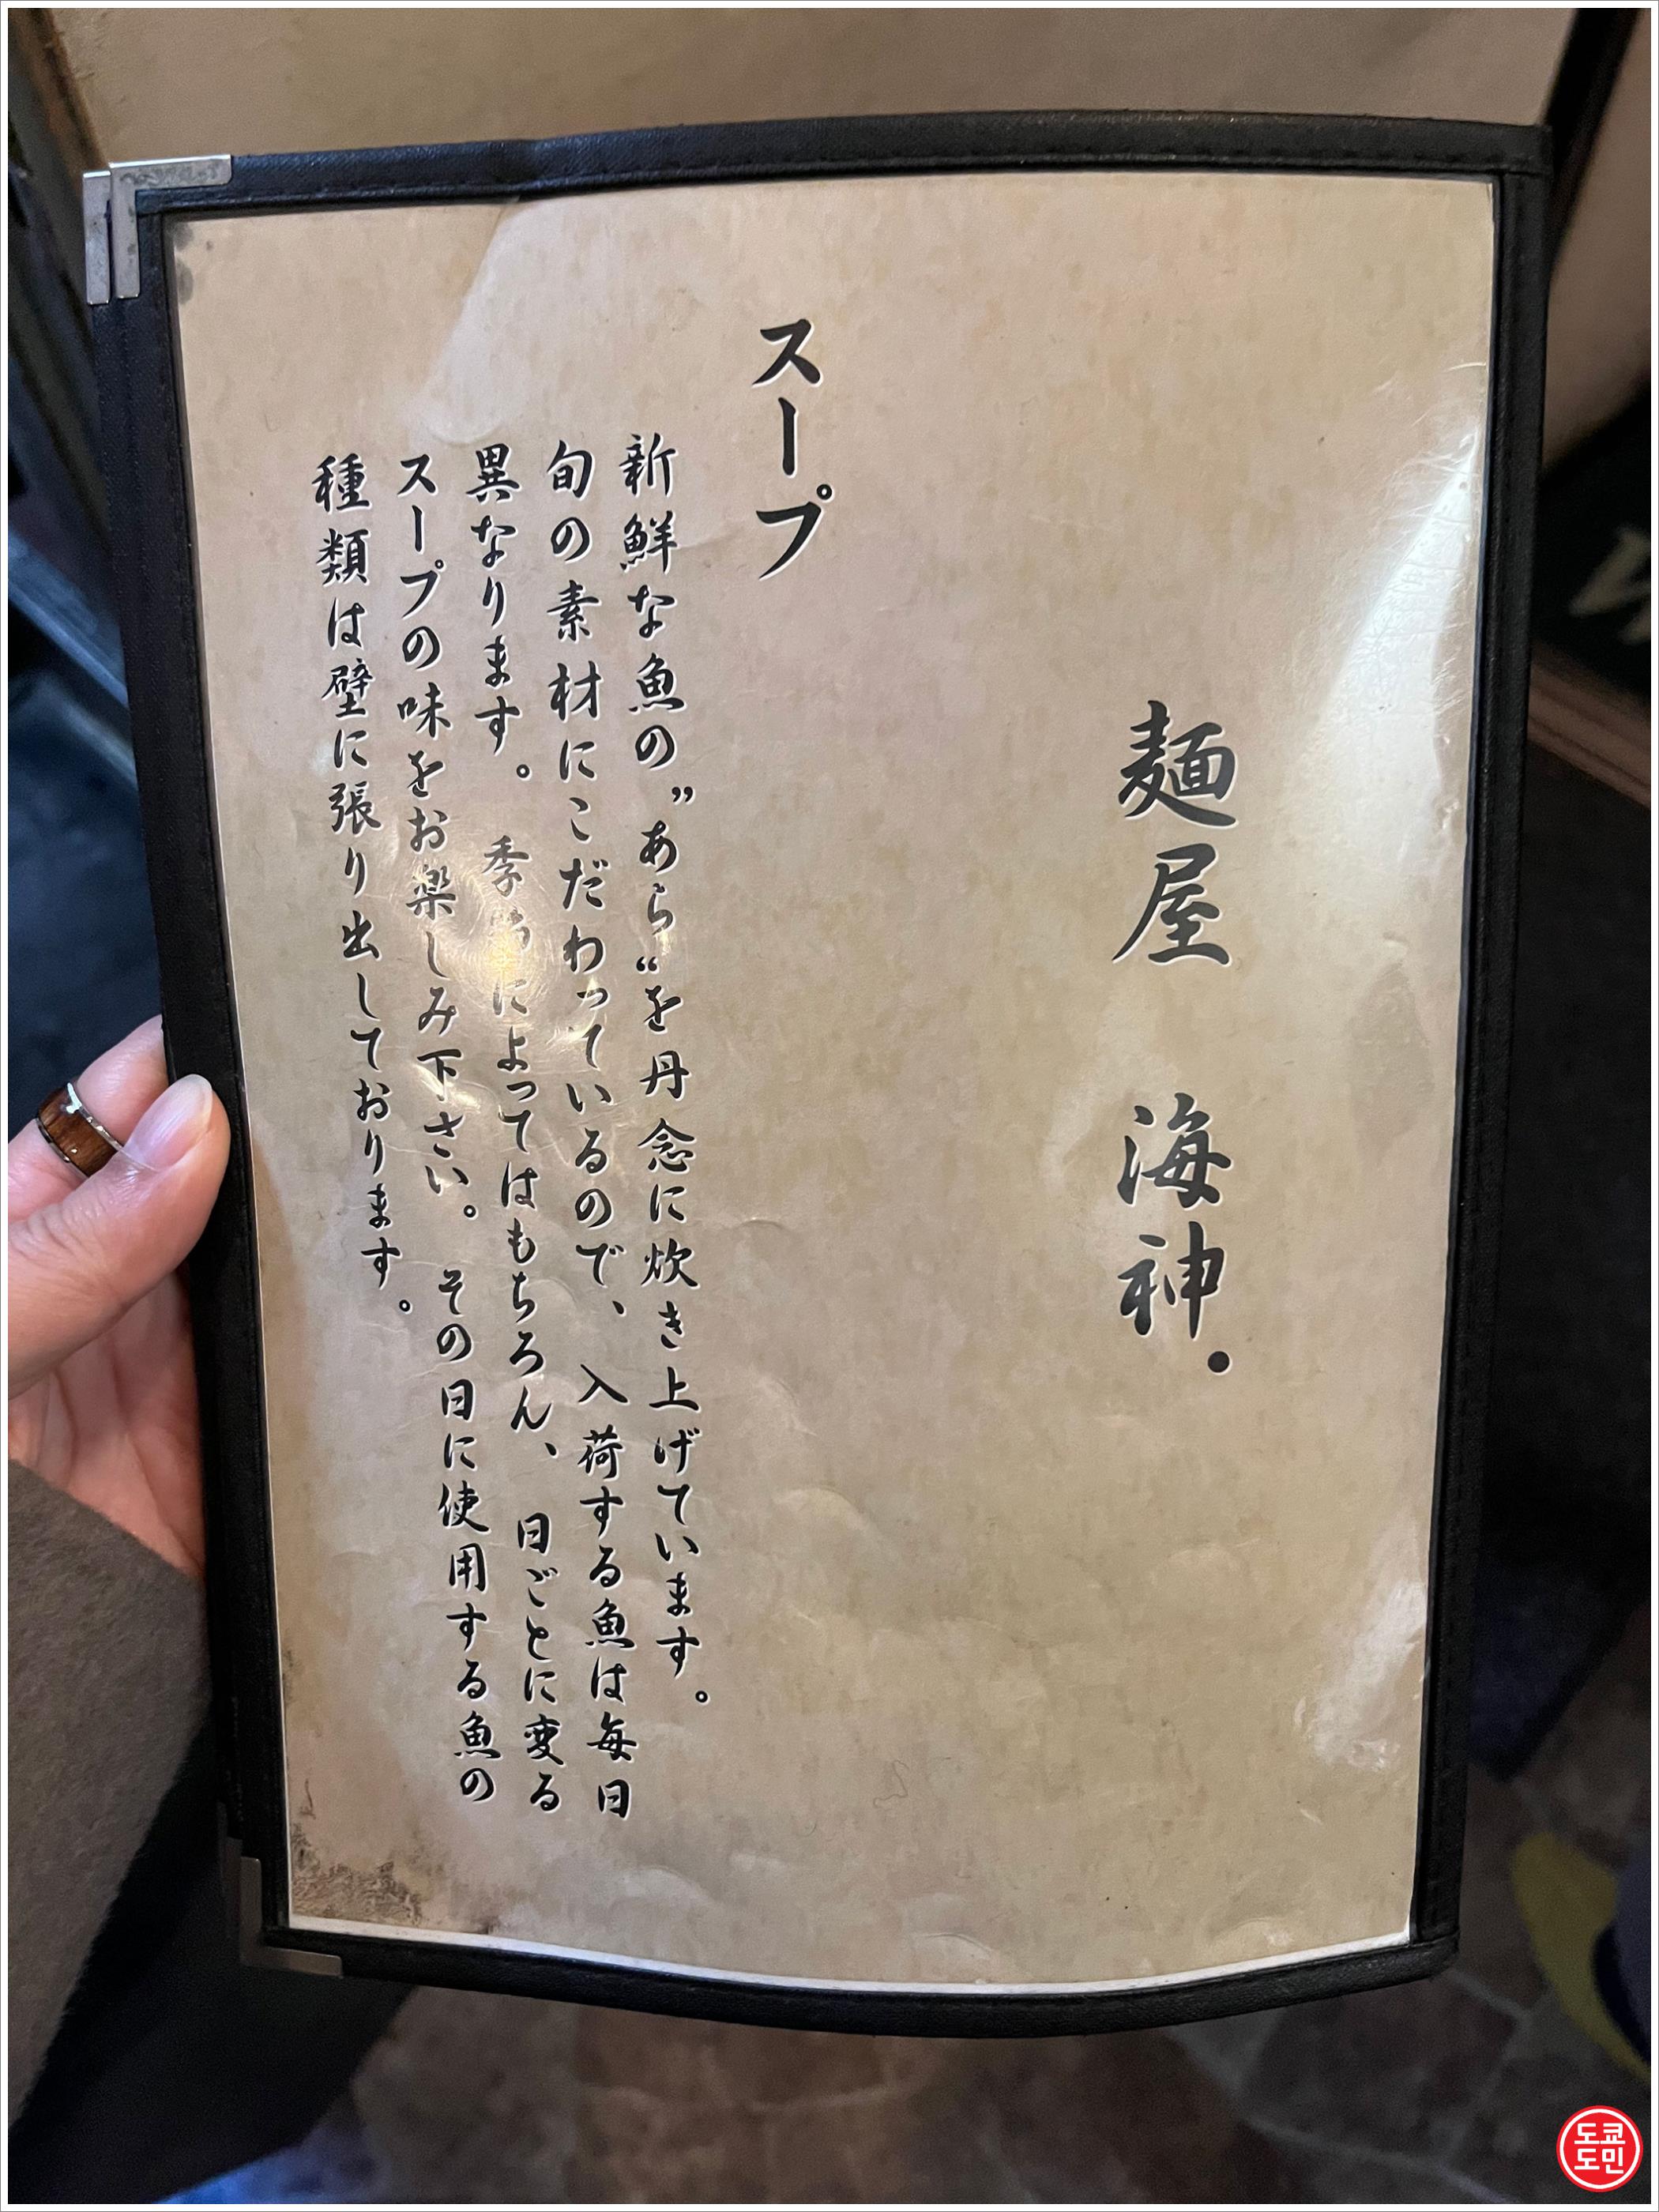 麺屋 海神.
スープ
新鮮な魚の”あら“を丹念に炊き上げています。
旬の素材にこだわっているので、入荷する魚は毎日
異なります。季 によってはもちろん、日ごとに変る
スープの味をお楽しみ下さい。その日に使用する魚の
種類は壁に張り出しております。
도쿄
도민